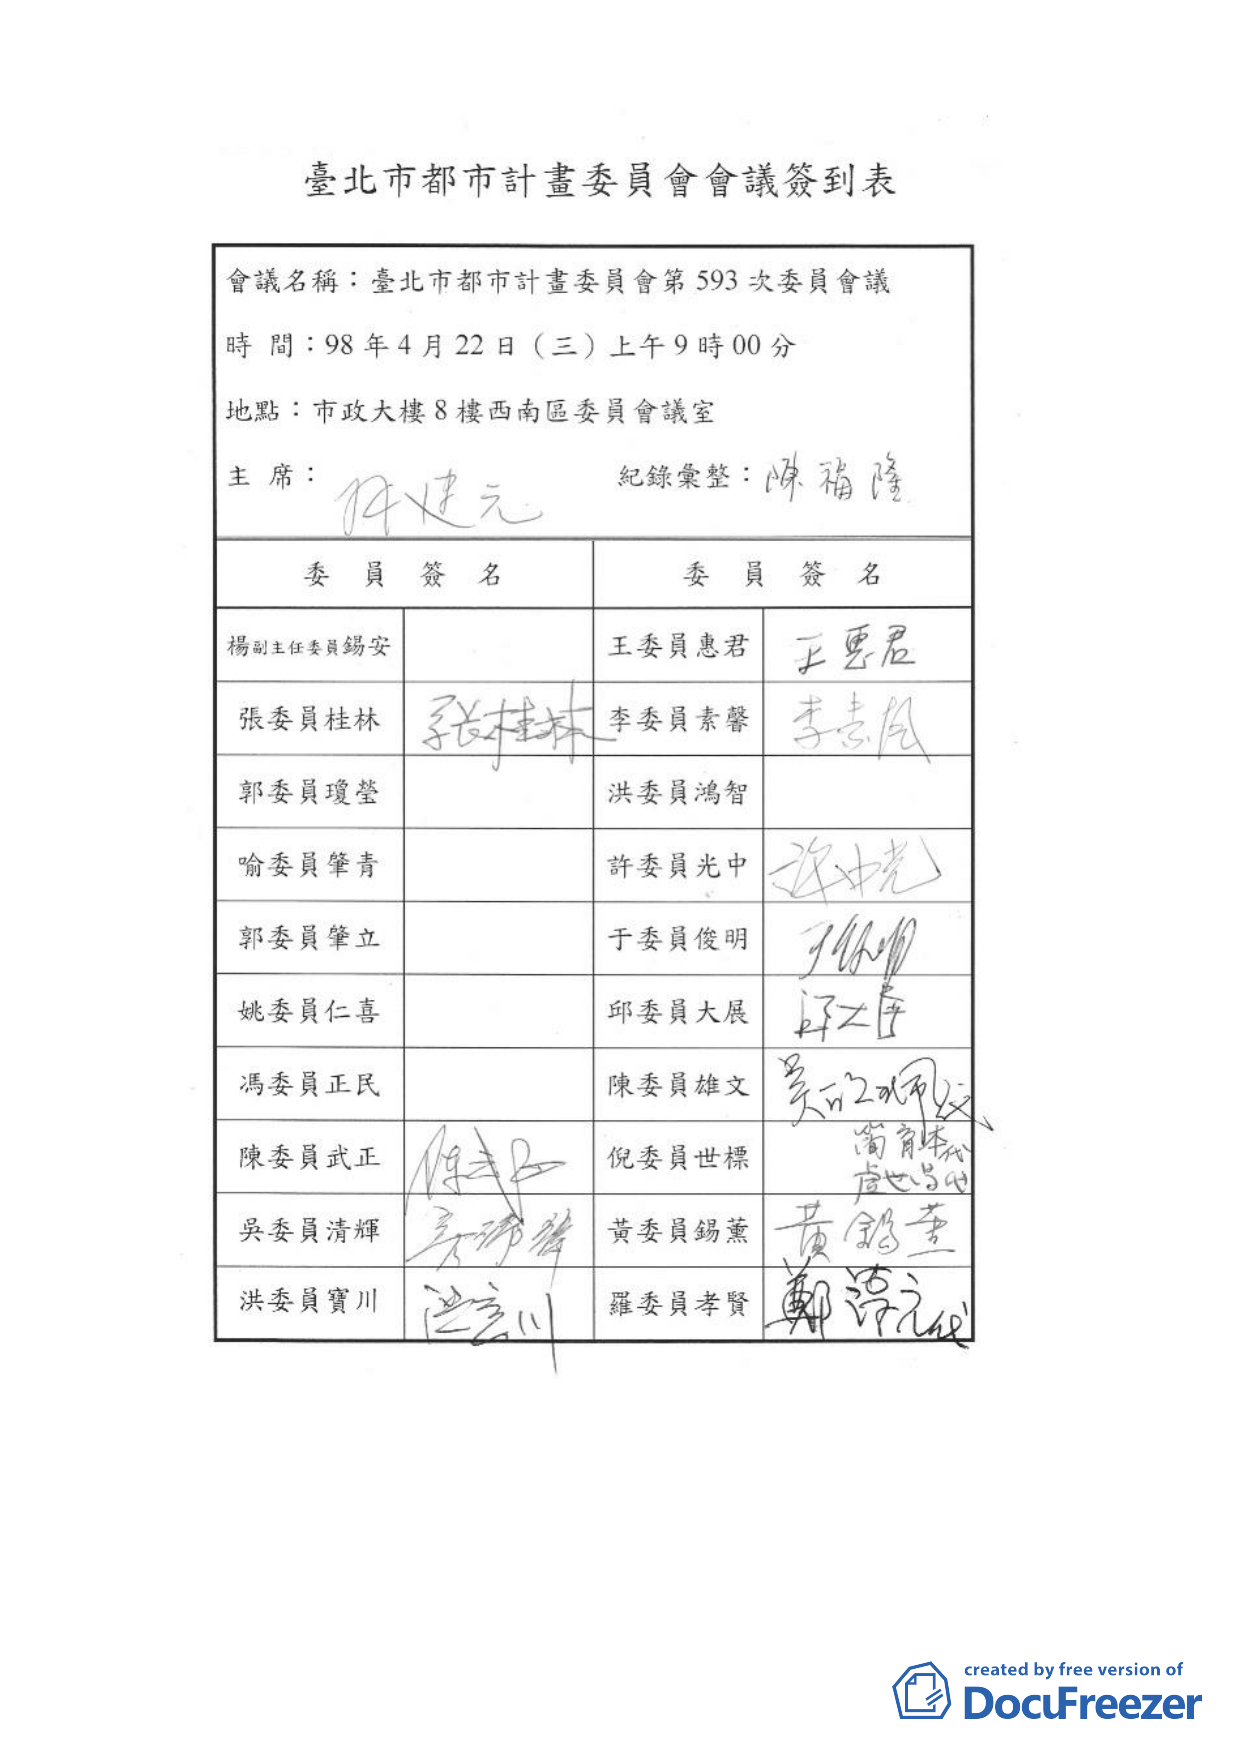 臺北市都市計畫委員會會議簽到表
會議名稱：臺北市都市計畫委員會第 593 次委員會議
時 間：98 年 4 月 22 日（三）上午 9 時 00 分
地點：市政大樓 8 樓西南區委員會議室
主 席： 林建元 紀錄彙整：陳福隆
委 員 簽 名 委 員 簽 名
楊副主任委員錫安 王委員惠君 王惠君
張委員桂林 張桂林 李委員素馨 李素
郭委員瓊瑩 洪委員鴻智
喻委員肇青 許委員光中
郭委員肇立 于委員俊明 于俊明
姚委員仁喜 邱委員大展 邱大展
馮委員正民 陳委員雄文 吳
陳委員武正 陳武正 倪委員世標 簡 代
吳委員清輝 黃委員錫薰 黃錫薰
洪委員寶川 洪寶川 羅委員孝賢 鄭淳元代
created by free version of
DocuFreezer